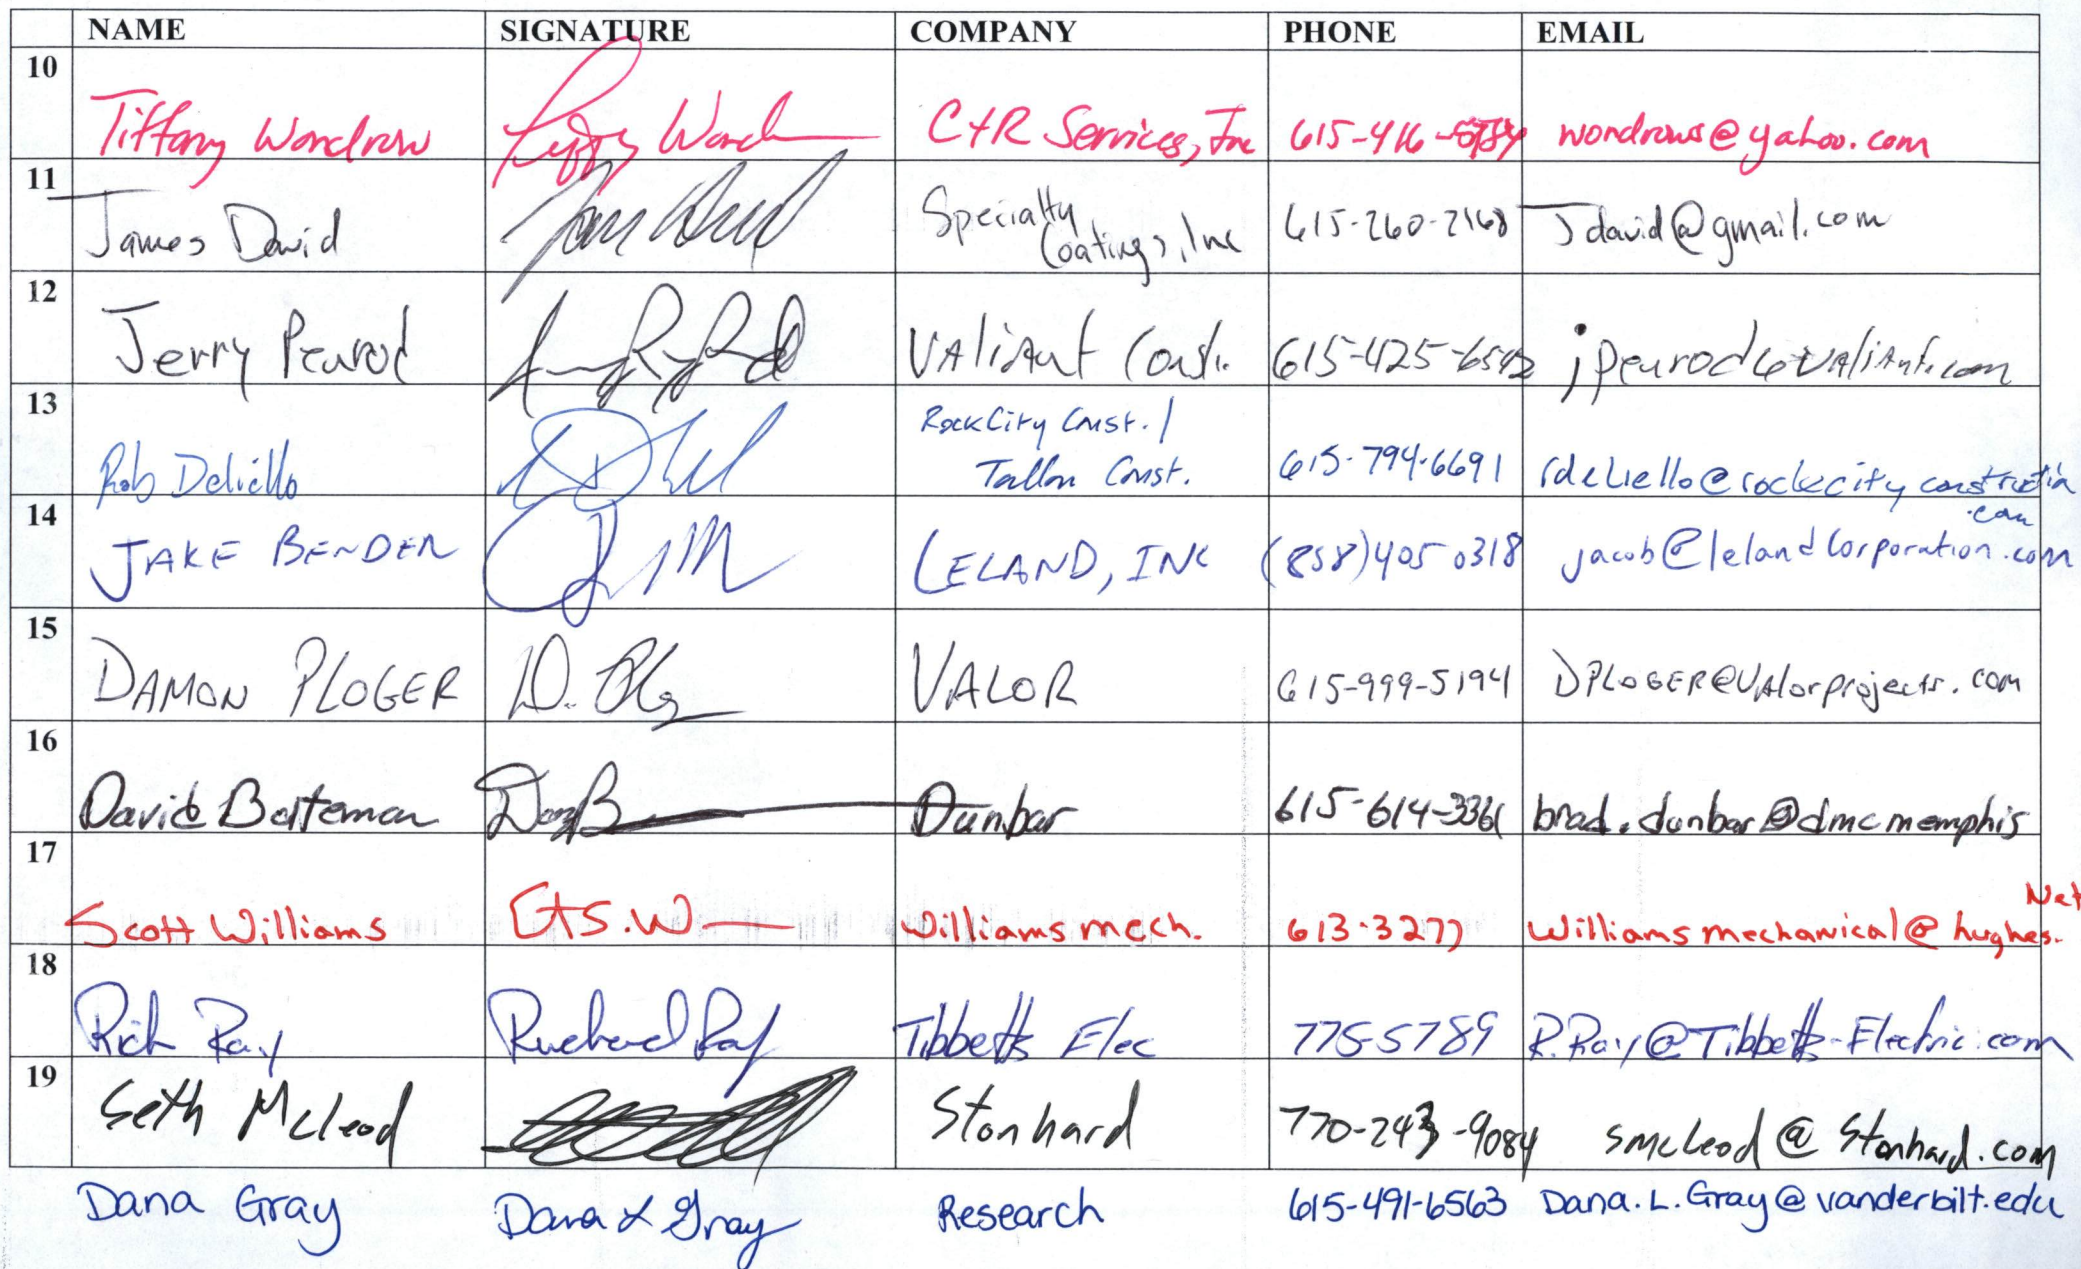 NAME SIGNATURE COMPANY PHONE EMAIL
10 Tiffany Wondrow C+R Services, Inc 615-416- wondrows@yahoo.com
11 James David Specialty Coatings, Inc 615-260-2168 Jdavid@gmail.com
12 Jerry Penrod VAliAnt Const. 615-425-6542 jpenrod@VAliAnt.com
13 Rob Deliello RockCity Const. / Tallon Const. 615-794-6691 rdeliello@rockcityconstruction.com
14 JAKE BENDER LELAND, INC (858)405 0318 jacob@lelandCorporation.com
15 DAMON PLOGER D. VALOR 615-999-5194 DPLOGER@VAlorprojects.com
16 David Bateman Dunbar 615-614-3361 brad.dunbar@dmcmemphis
17 Scott Williams Williams mech. 613-3277 Williamsmechanical@hughes.Net
18 Rich Ray Richard Ray Tibbetts Elec 775-5789 R.Ray@Tibbetts-Electric.com
19 Seth McLeod Stonhard 770-243-9084 smcLeod@Stonhard.com
Dana Gray Dana L Gray Research 615-491-6563 Dana.L.Gray@vanderbilt.edu